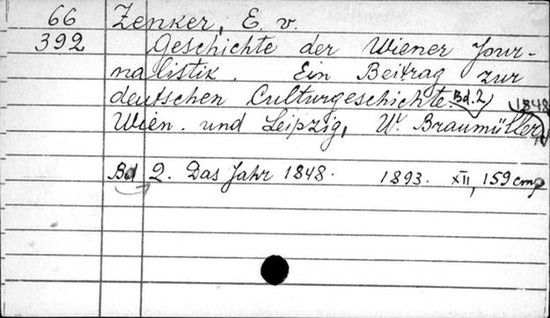 66 Zenker, E. v.
392 Geschichte der Wiener Jour-
nalistik. Ein Beitrag zur
deutschen Culturgeschichte. Bd. 2, 1848
Wien. und Leipzig, W. Braumüller,
Bd 2. Das Jahr 1848. 1893. XII, 159 стр